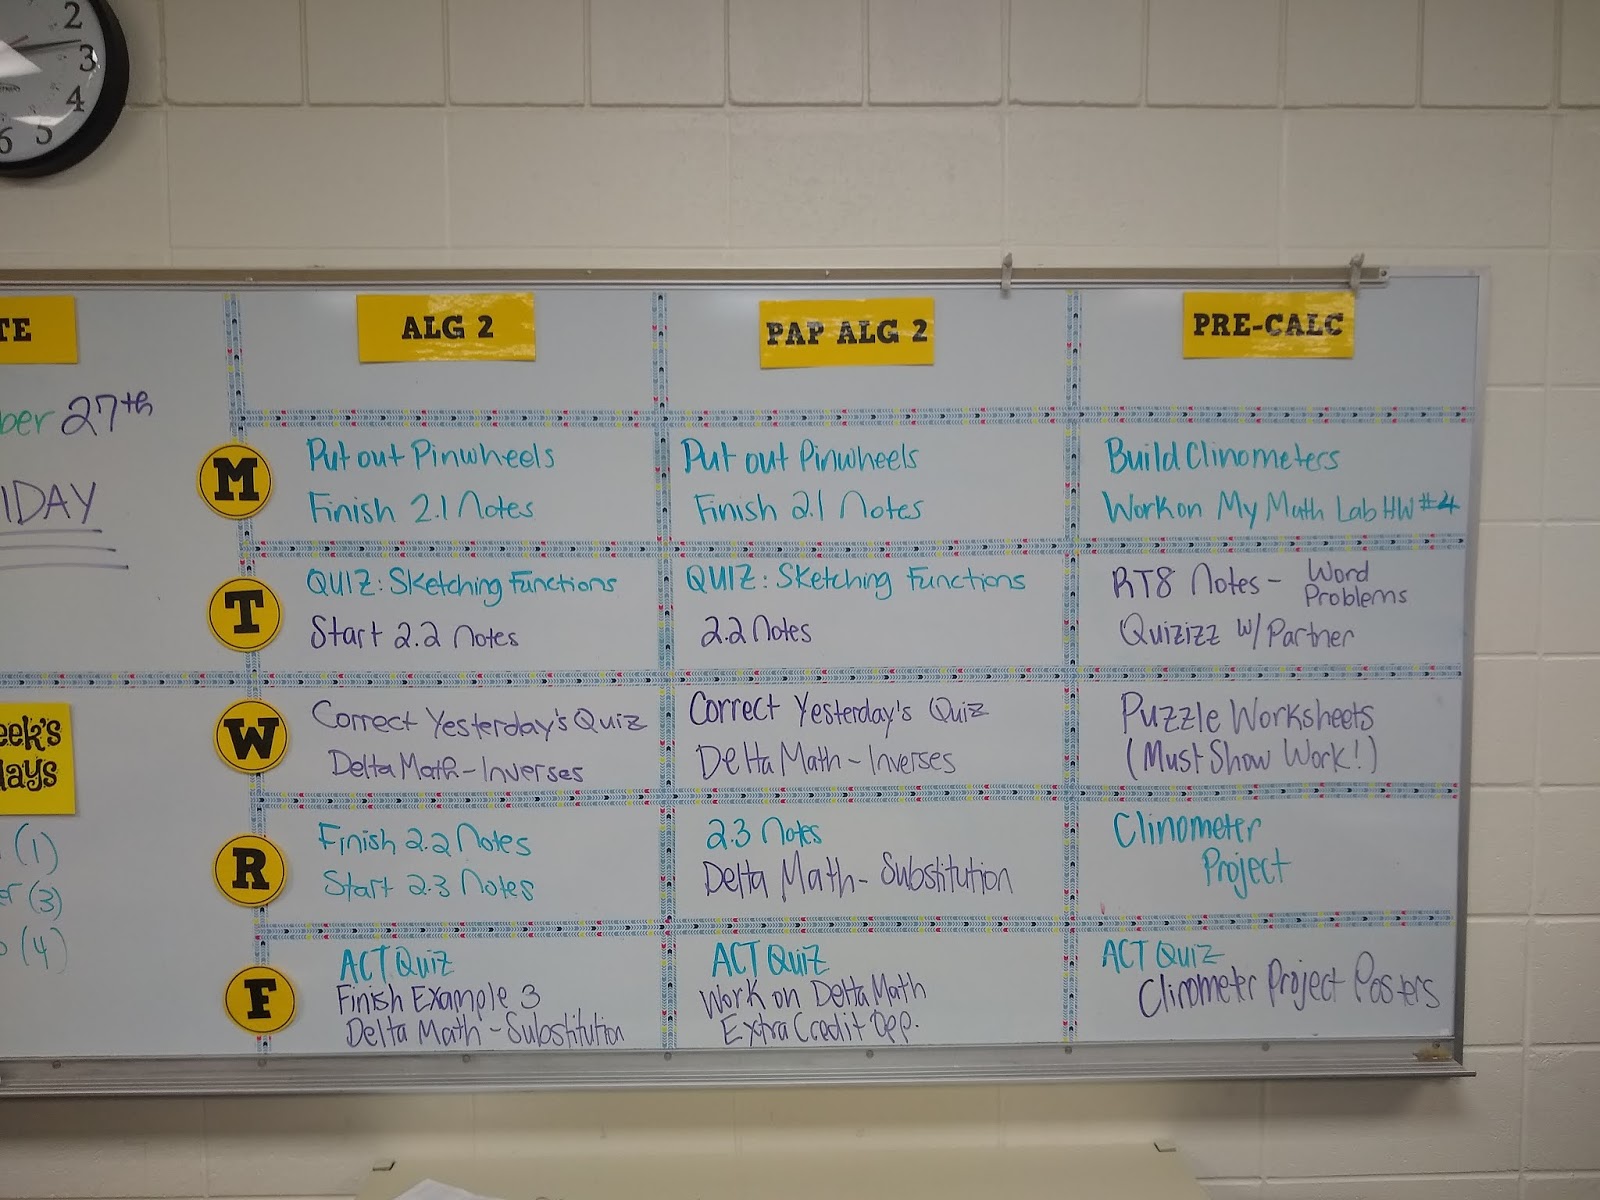 2
3
4
5
6
TE
ALG 2
PAP ALG 2
PRE-CALC
ber 27th
IDAY
M
Put out Pinwheels
Finish 2.1 Notes
Put out Pinwheels
Finish 2.1 Notes
Build Clinometers
Work on My Math Lab HW #4
T
QUIZ: Sketching Functions
Start 2.2 Notes
QUIZ: Sketching Functions
2.2 Notes
RT8 Notes - Word
Problems
Quizizz w/ Partner
W
Correct Yesterday's Quiz
Delta Math - Inverses
Correct Yesterday's Quiz
Delta Math - Inverses
Puzzle Worksheets
(Must Show Work!)
eek's
days
(1)
er (3)
o (4)
R
Finish 2.2 Notes
Start 2.3 Notes
2.3 Notes
Delta Math - Substitution
Clinometer
Project
F
ACT Quiz
Finish Example 3
Delta Math - Substitution
ACT Quiz
Work on Delta Math
Extra Credit Opp.
ACT Quiz
Clinometer Project Posters